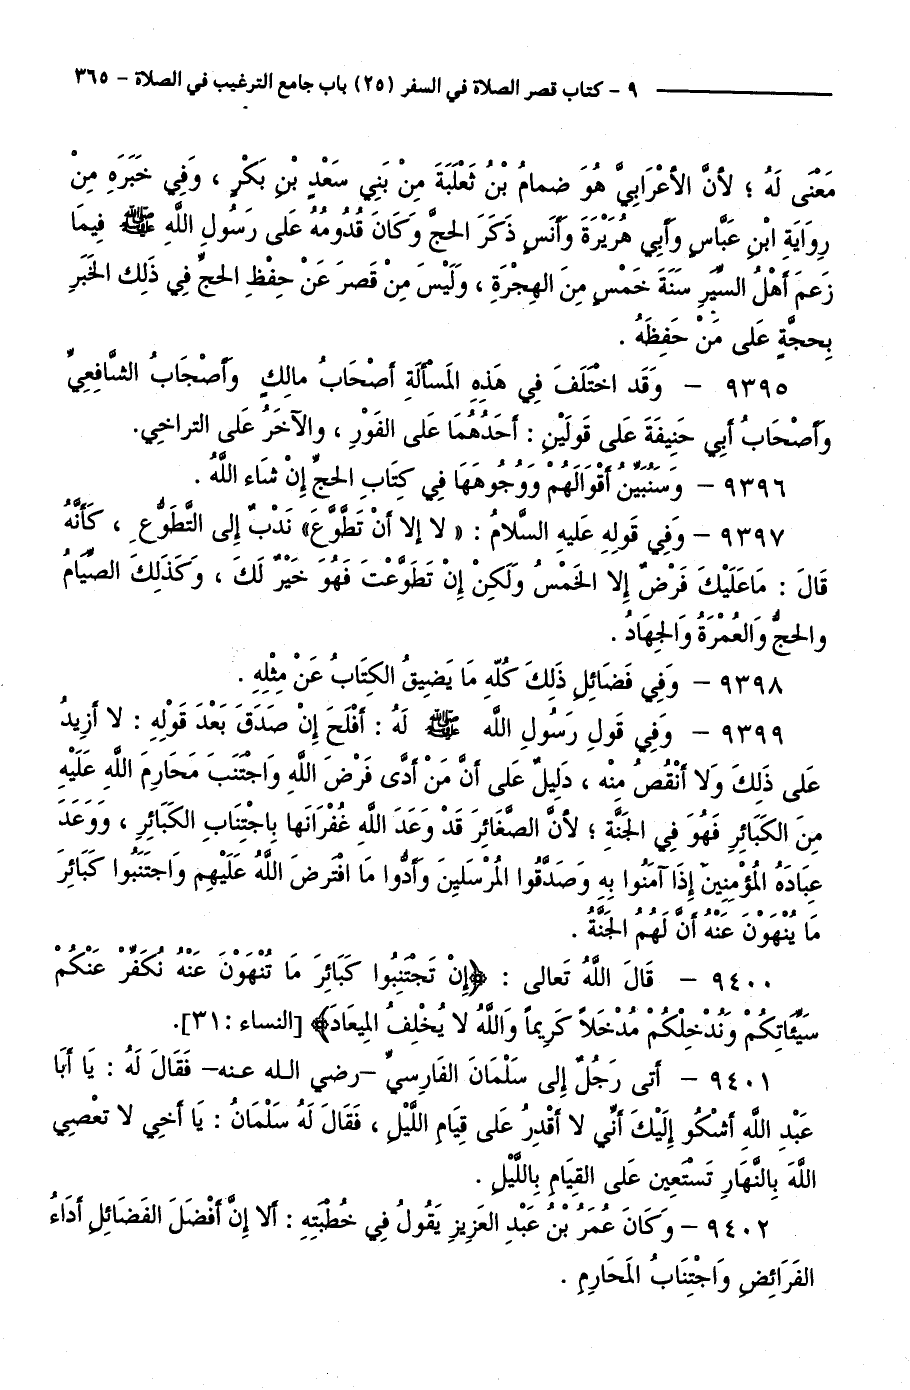 ٩ - كتاب قصر الصلاة في السفر (٢٥) باب جامع الترغيب في الصلاة - ٣٦٥
مَعْنَى لَهُ ؛ لأنَّ الأعْرَابِيَّ هُوَ ضمامُ بْنُ ثَعْلَبَةَ مِنْ بَنِي سَعْدِ بْنِ بَكْرٍ ، وَفِي خَبَرَهِ مِنْ
رِوَايَةِ ابْنِ عَبَّاسٍ وَأَبِي هُرَيْرَةَ وَأَنَسٍ ذَكَرَ الحجَّ وَكَانَ قُدُومُهُ عَلى رَسُولِ اللَّهِ ﷺ فِيمَا
زَعمَ أَهْلُ السِّيَرِ سَنَةَ خَمْسٍ مِنَ الهِجْرَةِ ، وَلَيْسَ مِنْ قصرَ عَنْ حِفْظِ الحجِّ فِي ذَلِك الخَبَرِ
بِحجَّةٍ عَلى مَنْ حَفِظَهُ .
٩٣٩٥ - وَقَد اخْتَلَفَ فِي هَذِهِ المَسأَلَةِ أصْحَابُ مالِكٍ وَأَصْحَابُ الشَّافِعِيِّ
وَأصْحَابُ أبِي حَنِيفَةَ عَلى قَولَيْنِ : أحَدُهُمَا عَلى الفَوْرِ ، والآخَرُ عَلى التراخِي.
٩٣٩٦ - وَسَنُبَيِّنُ أقْوَالَهُمْ وَوُجُوهَهَا فِي كِتَابِ الحجِّ إنْ شَاءَ اللَّهُ .
٩٣٩٧ - وَفِي قَولِهِ عَليهِ السَّلامُ : « لا إلا أنْ تَطَّوَّعَ» نَدْبٌ إلى التَّطَوُّعِ ، كَأنَّهُ
قَالَ : مَاعَلَيْكَ فَرْضٌ إلا الخَمْسُ وَلَكِنْ إنْ تَطَوَّعْتَ فَهُوَ خَيْرٌ لَكَ ، وَكَذَلِكَ الصِّيَامُ
والحجُّ وَالعُمْرَةُ وَالجِهَادُ .
٩٣٩٨ - وَفِي فَضَائِلِ ذَلِكَ كُلِّهِ مَا يَضيقُ الكِتَابُ عَنْ مِثْلِهِ .
٩٣٩٩ - وَفِي قَولِ رَسُولِ اللَّه ﷺ لَهُ : أفْلَحَ إنْ صَدَقَ بَعْدَ قَوْلِهِ : لا أزِيدُ
عَلى ذَلِكَ وَلا أنْقُصُ مِنْه ، دَلِيلٌ عَلى أنَّ مَنْ أدَّى فَرْضَ اللَّهِ وَاجْتَنَبَ مَحَارِمَ اللَّهِ عَلَيْهِ
مِنَ الكَبَائِرِ فَهُوَ فِي الجَنَّةِ ؛ لأنَّ الصَّغَائِرَ قَدْ وَعَدَ اللَّهِ غُفْرَانَها بِاجْتِنَابِ الكَبَائِرِ ، وَوَعَدَ
عِبَادَهُ المُؤْمِنِينَ إذَا آمَنُوا بِهِ وَصَدَّقُوا المُرْسَلِينَ وَأدُّوا مَا افْتَرضَ اللَّهُ عَلَيْهِم وَاجتَنَبُوا كَبَائِرَ
مَا يُنْهَوْنَ عَنْهُ أنَّ لَهُمُ الجَنَّةُ .
٩٤٠٠ - قَالَ اللَّهُ تَعالى : ﴿إنْ تَجتَنِبُوا كَبَائِرَ مَا تُنْهَوْنَ عَنْهُ نُكَفِّرْ عَنْكُمْ
سَيِّئَاتِكُمْ وَنُدْخِلْكُمْ مُدْخَلاً كَرِيماً وَاللَّهُ لا يُخْلِفُ المِيعَادَ﴾ [النساء :٣١].
٩٤٠١ - أَتى رَجُلٌ إلى سَلْمَانَ الفَارِسيِّ -رضي اللـه عنـه- فَقَالَ لَهُ : يَا أبَا
عَبْدِ اللَّهِ أشكُو إلَيْكَ أنِّي لا أقْدِرُ عَلى قِيَامِ اللَّيْلِ ، فَقَالَ لَهُ سَلْمَانُ : يَا أخِي لا تعْصِي
اللَّهَ بِالنَّهَارِ تَسْتَعِين عَلى القِيَامِ بِاللَّيْلِ .
٩٤٠٢ - وَكَانَ عُمَرُ بْنُ عَبْدِ العَزِيزِ يَقُولُ فِي خُطْبَتِهِ : ألا إنَّ أفْضَلَ الفَضَائِلِ أدَاءُ
الفَرَائِضِ وَاجْتِنَابُ المَحَارِمِ .